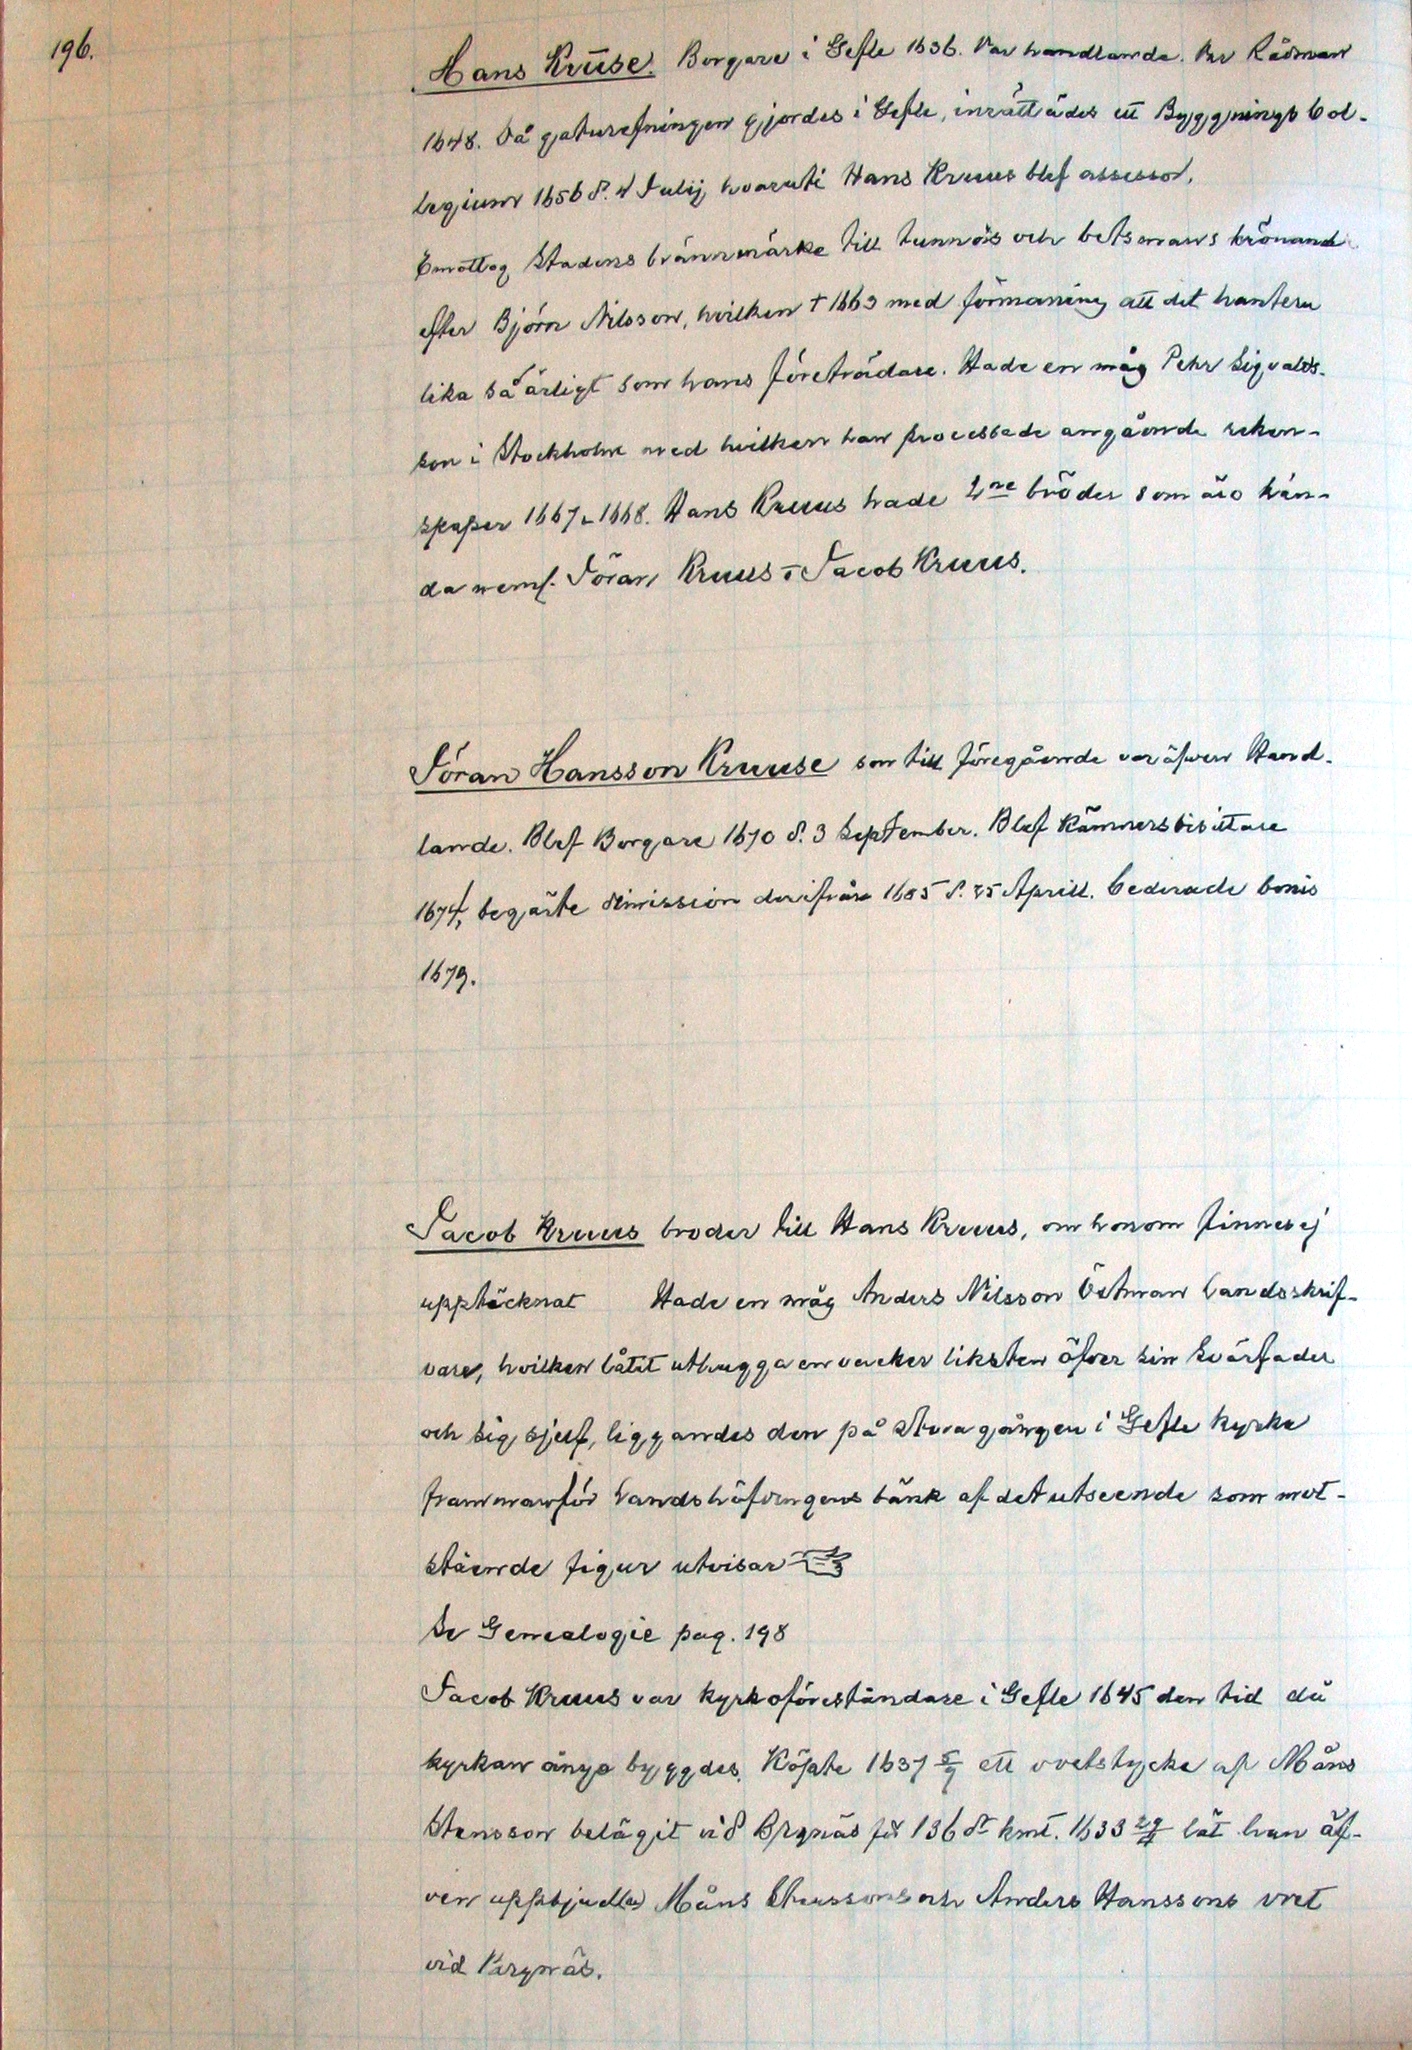 196.
Hans Kruse. Borgare i Gefle 1636. Var handlande. Var Rådman
1648. Då gaturefningen gjordes i Gefle, inrättades ett Byggnings Col-
legium 1656 d. 4 Julij hvaruti Hans Kruus blef assessor.
Emottog Stadens brännmärke till tunnors och betsmans krönande
efter Björn Nilsson, hvilken † 1663 med förmaning att det hantera
lika så ärligt som hans företrädare. Hade en måg Pehr Sigvalds-
son i Stockholm med hvilken han processade angående räken-
skaper 1667 1668. Hans Kruus hade 2ne bröder som äro kän-
da neml. Jöran Kruus o Jacob Kruus.
Jöran Hansson Kruuse son till föregående var äfven Hand-
lande. Blef Borgare 1670 d. 3 September. Blef Kämnersbisittare
1674, begärte dimission derifrån 1685 d. 25 Aprill. Cederade bonis
1679.
Jacob Kruus broder till Hans Kruus, om honom finnes ej
upptäcknat Hade en måg Anders Nilsson Östman Landsskrif-
vare, hvilken låtit uthugga en vacker liksten öfver sin Svärfader
och sig sjelf, liggandes den på Stora gången i Gefle kyrka
frammanför Landshöfdingens bänk af det utseende som mot-
stående figur utvisar ☞
Se Genealogie pag. 198
Jacob Kruus var kyrkoföreståndare i Gefle 1645 den tid då
kyrkan ånyo byggdes. Köpte 1637 5/9 ett vretstycke af Måns
Stensson belägit vid Brynäs för 136 dr kmt. 1633 29/4 lät han äf-
ven uppbjuda Måns och Anders Hanssons vret
vid Brynäs.